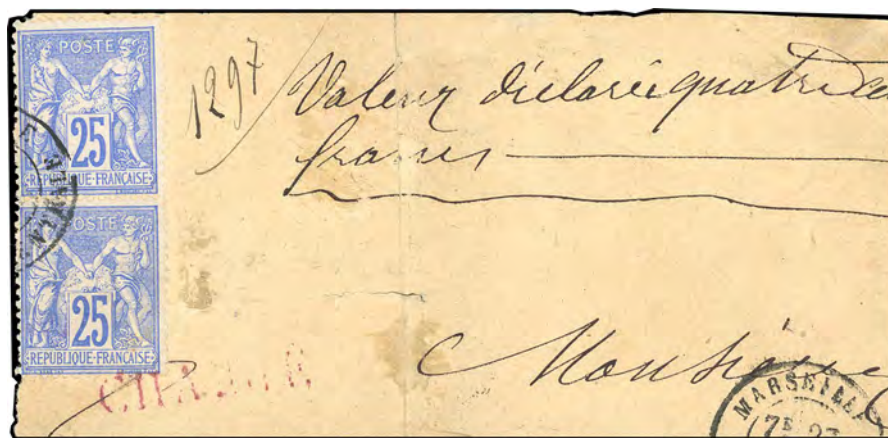 POSTE
25
RÉPUBLIQUE·FRANÇAISE
POSTE
25
RÉPUBLIQUE·FRANÇAISE
1297
Valeur déclarée quatre
francs
Monsieur
MARSEILLE
(7E 23